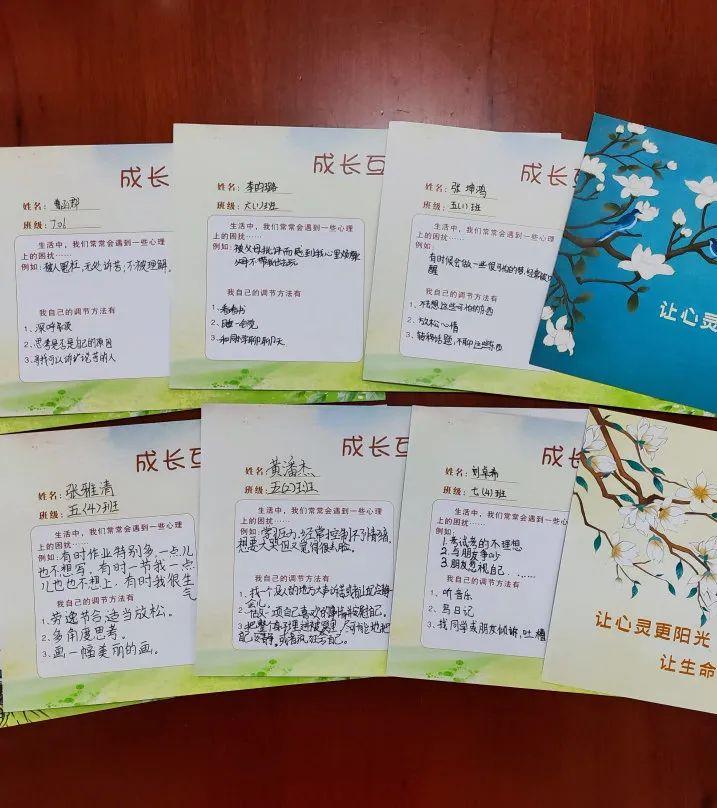 成长互
姓名：
班级：701
生活中，我们常常会遇到一些心理
上的困扰……
例如：被人冤枉，无处诉苦，不被理解。
我自己的调节方法有
1、深呼吸
2、思考是否是自己的原因
3、寻找可以诉说苦的人
成长互
姓名：李昀璐
班级：六(1)班
生活中，我们常常会遇到一些心理
上的困扰……
例如：被父母批评而感到我心里
我自己的调节方法有
1、看看书
2、睡一会觉
3、和同学聊聊天
成长互
姓名：张坤鸿
班级：五(1)班
生活中，我们常常会遇到一些心理
上的困扰……
例如：有时候会做一些很可怕的梦，经常被
醒
我自己的调节方法有
1、不去想这些可怕的东西
2、放松心情
3、转移话题，不聊这些东西
让心灵
成长互
姓名：张雅清
班级：五(4)班
生活中，我们常常会遇到一些心理
上的困扰……
例如：有时作业特别多，一点儿
也不想写，有时一节我一点
儿也也不想上，有时我很生
气
我自己的调节方法有
1、劳逸节合适当放松。
2、多角度思考。
3、画一幅美丽的画。
成长互
姓名：黄潘杰
班级：五(2)班
生活中，我们常常会遇到一些心理
上的困扰……
例如：常压力，经常控制不了情绪，
想要大哭但又觉得很丢脸。
我自己的调节方法有
1、找一个没人的地方大声诉苦或者
会儿。
2、做一项自己喜欢的事情来放射自己。
3、把整个身子埋进被窝里，尽可能地把
自己
成长互
姓名：刘卓希
班级：七(4)班
生活中，我们常常会遇到一些心理
上的困扰……
例如：1.考试考的不理想
2.与朋友争吵
3.朋友忽视自己 ……
我自己的调节方法有
1、听音乐
2、写日记
3、找同学或朋友倾诉，吐槽
让心灵更阳光
让生命